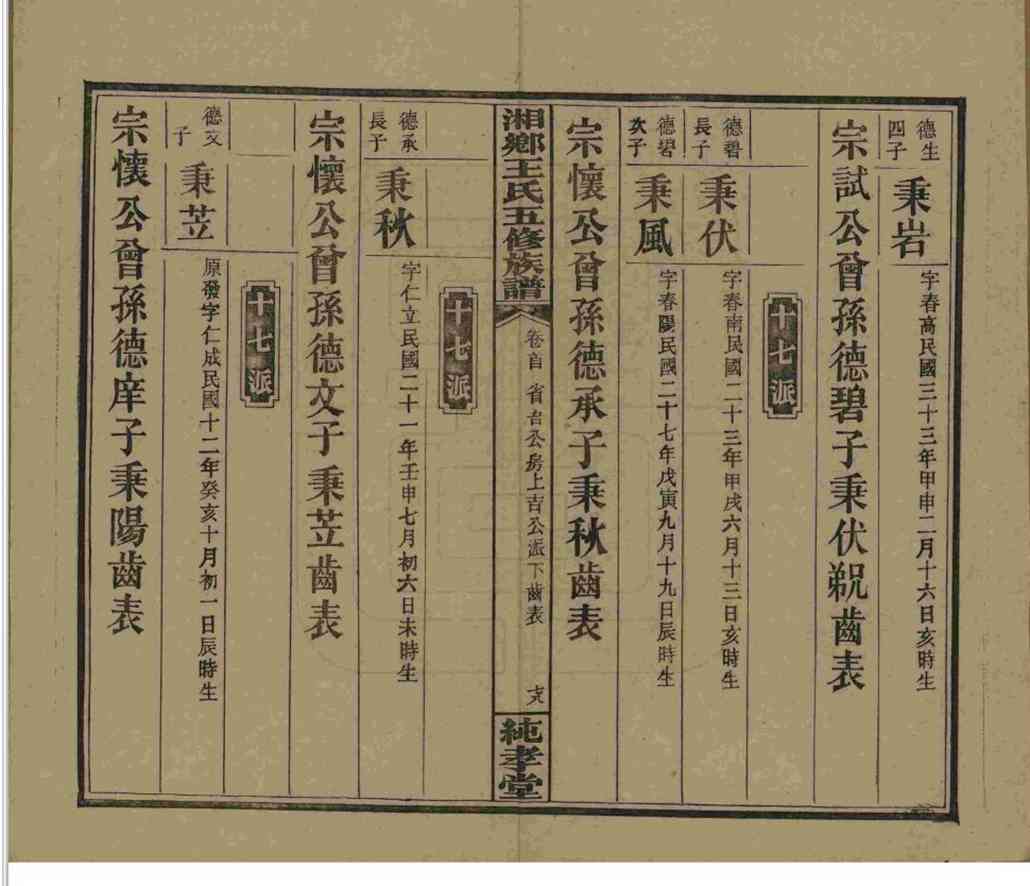 德生
四子
秉岩
字春高民國三十三年甲申二月十六日亥時生
宗試公曾孫德碧子秉伏 齒表
十七派
德碧
長子
秉伏
字春南民國二十三年甲戌六月十三日亥時生
德碧
次子
秉風
字春陽民國二十七年戊寅九月十九日辰時生
宗懷公曾孫德承子秉秋齒表
湘鄉王氏五修族譜
卷首
省吉公房上吉公派下齒表
純孝堂
十七派
德承
長子
秉秋
字仁立民國二十一年壬申七月初六日未時生
宗懷公曾孫德文子秉苙齒表
十七派
德文
子
秉苙
原發字仁成民國十二年癸亥十月初一日辰時生
宗懷公曾孫德庠子秉陽齒表